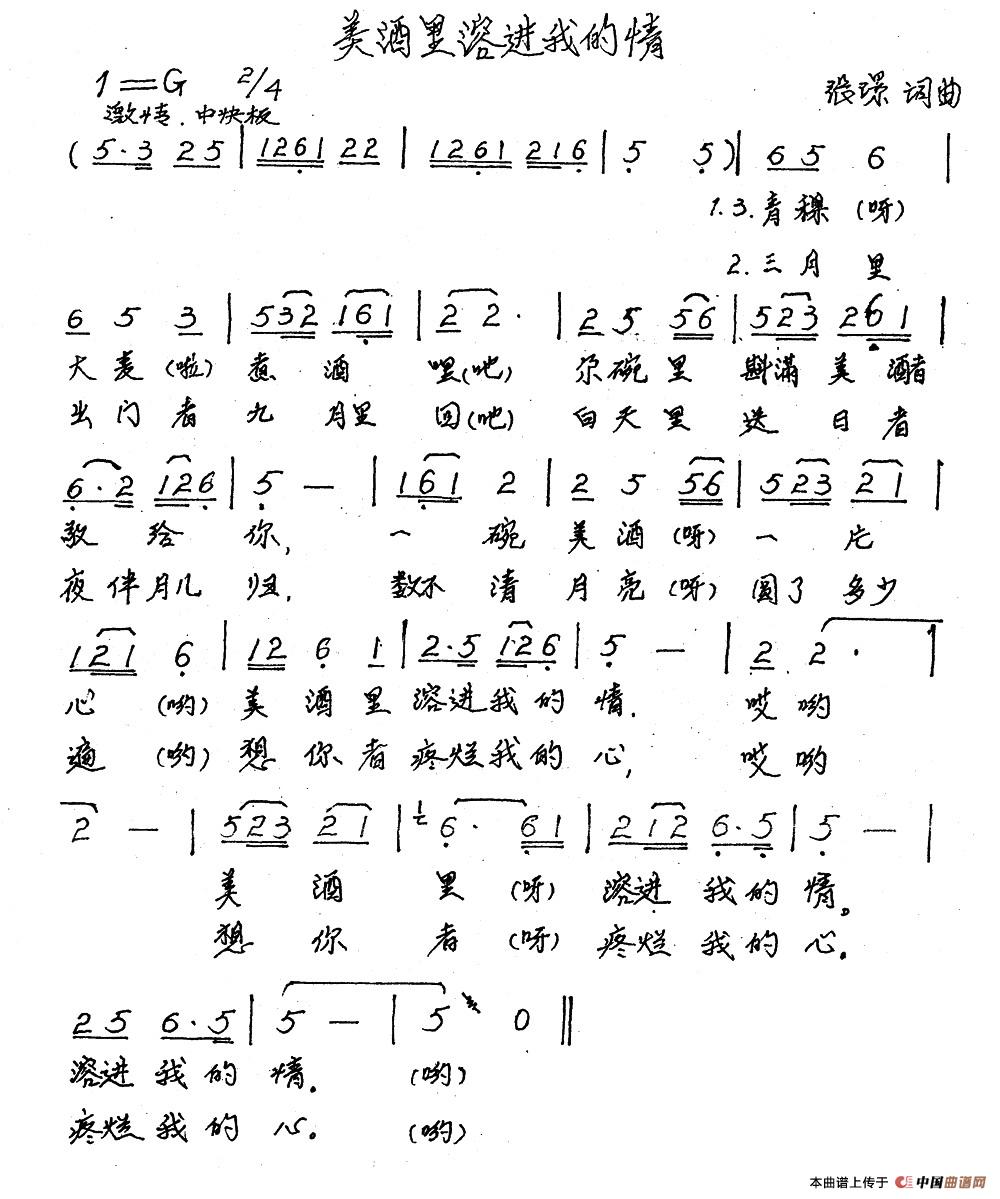 美酒里溶进我的情
1=G 2/4
张璟 词曲
激情.中快板
(5·3 25|1261 22|1261 216|5 5)|65 6|
1.3.青稞(呀)
2.三月里
6 5 3|532 161|2 2·|2 5 56|523 261|
大麦(啦)煮酒嘿(吔)尕碗里斟满美酒者
出门者九月里回(吔)白天里送日者
6·2 126|5 —|161 2|2 5 56|523 21|
敬给你,一碗美酒(呀)一片
夜伴月儿归,数不清月亮(呀)圆了多少
121 6|12 6 1|2·5 126|5 —|2 2·|
心(哟)美酒里溶进我的情.哎哟
遍(哟)想你者疼烂我的心,哎哟
2 —|523 21|6· 61|212 6·5|5 —|
美酒里(呀)溶进我的情。
想你者(呀)疼烂我的心.
25 6·5|5 —|5 0‖
溶进我的情.(哟)
疼烂我的心.(哟)
本曲谱上传于 中国曲谱网